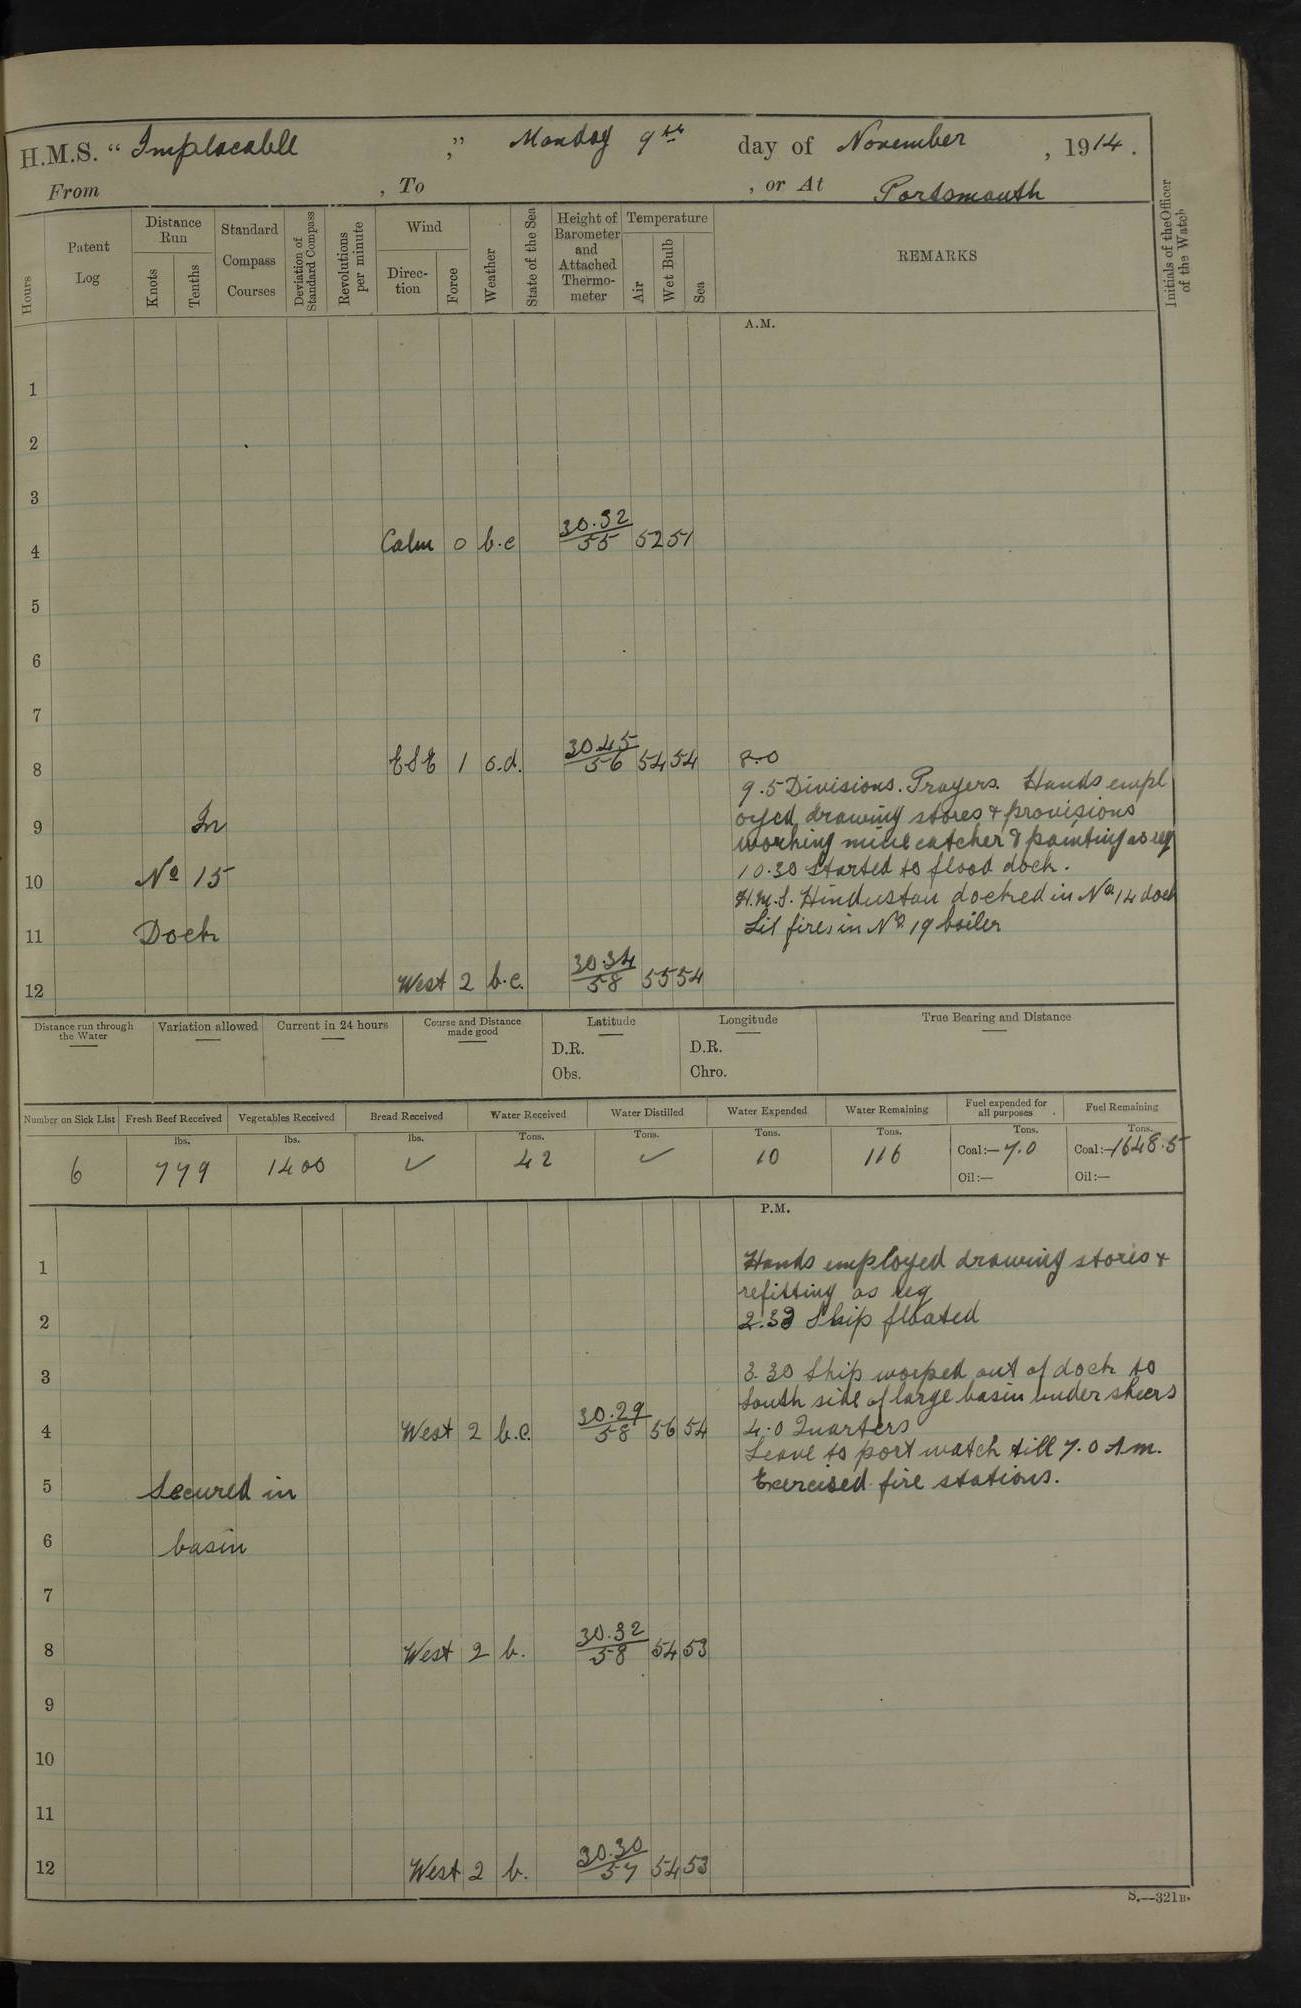 H.M.S. “ Implacable ,” Monday 9th day of November , 1914.
From , To , or At Portsmouth
Hours
Patent Log
Distance Run
Knots
Tenths
Standard Compass Courses
Deviation of Standard Compass
Revolutions per minute
Wind
Direction
Force
Weather
State of the Sea
Height of Barometer and Attached Thermometer
Temperature
Air
Wet Bulb
Sea
REMARKS
Initials of the Officer of the Watch
A.M.
1
2
3
4 Calm 0 b.c 30.32/55 52 51
5
6
7
8 ESE 1 o.d. 30.45/56 54 54 8.0
9.5 Divisions. Prayers. Hands empl
9 In oyed drawing stores & provisions
working mine catcher & painting as req
10 No 15 10.30 Started to flood dock.
H.M.S. Hindustan docked in No. 14 dock
11 Dock Lit fires in No. 19 boiler
12 West 2 b.c. 30.34/58 55 54
Distance run through the Water
Variation allowed
Current in 24 hours
Course and Distance made good
Latitude
D.R.
Obs.
Longitude
D.R.
Chro.
True Bearing and Distance
Number on Sick List
Fresh Beef Received
Vegetables Received
Bread Received
Water Received
Water Distilled
Water Expended
Water Remaining
Fuel expended for all purposes
Fuel Remaining
lbs. lbs. lbs. Tons. Tons. Tons. Tons. Tons. Tons.
6 779 1400 ✓ 42 ✓ 10 116 Coal:— 7.0 Coal:— 1648.5
Oil:— Oil:—
P.M.
1 Hands employed drawing stores &
refitting as req
2 2.33 Ship floated
3 3.30 Ship warped out of dock to
South side of large basin under sheers
4 West 2 b.c. 30.29/58 56 54 4.0 Quarters
Leave to port watch till 7.0 Am.
5 Secured in Exercised fire stations.
6 basin
7
8 West 2 b. 30.32/58 54 53
9
10
11
12 West 2 b. 30.30/57 54 53
S.—321B.